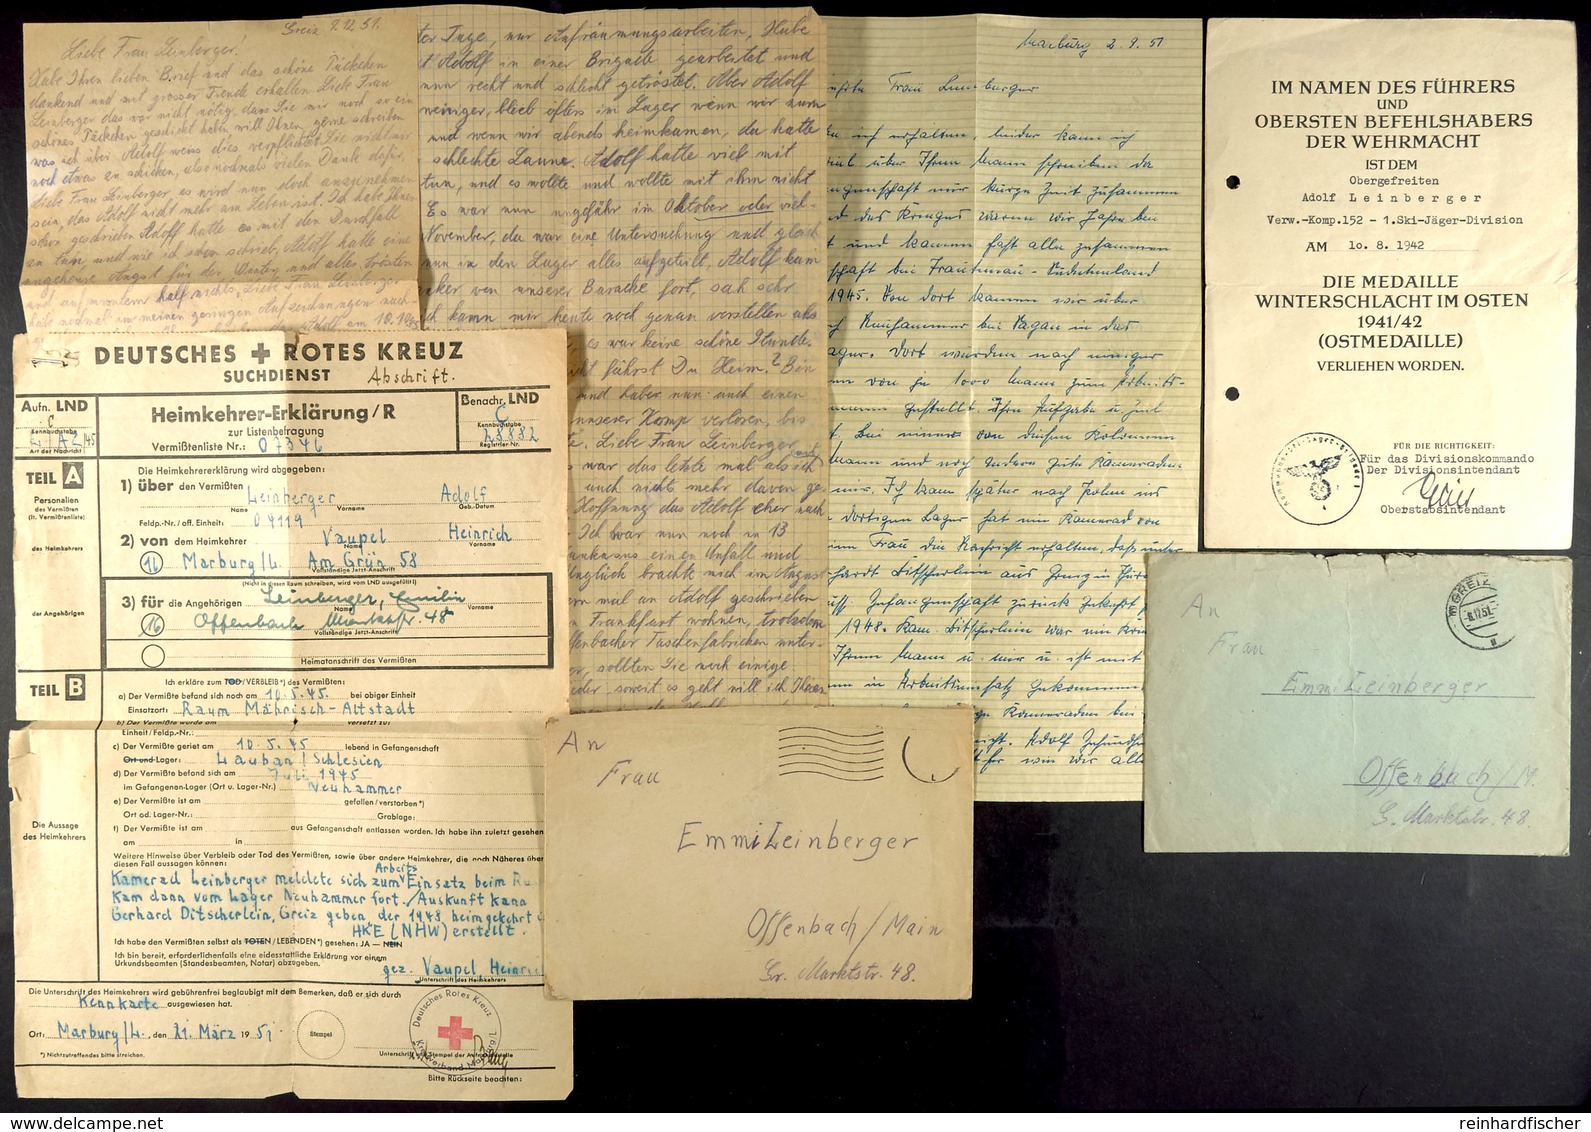 Greiz 9.12.51.
Liebe Frau Leinberger!
Habe Ihren lieben Brief und das schöne Päckchen
dankend und mit grosser Freude erhalten Liebe Frau
Leinberger das war nicht nötig, dass Sie mir noch so ein
schönes Päckchen geschickt haben will Ihnen gerne schreiben
was ich über Adolf weiss dies verpflichtet Sie nicht mir
noch etwas zu schicken, also nochmals vielen Dank dafür.
Liebe Frau Leinberger es wird nun doch anzunehmen
sein, das Adolf nicht mehr am Leben ist. Ich habe Ihnen
schon geschrieben Adolf hatte es mit den Durchfall
zu tun und wie ich schon schrieb, Adolf hatte eine
ungeheure Angst für den Winter und alles trösten
und aufmuntern half nichts. Liebe Frau Leinberger
habe nochmal in meinen geringen Aufzeichnungen nach-
Adolf am 10.10.45
ter Tage, nur Aufräumungsarbeiten. Habe
t Adolf in einer Brigade gearbeitet und
nun recht und schlecht getröstet. Aber Adolf
weiniger, blieb öfters im Lager wenn wir zum
und wenn wir abends heimkamen, da hatte
schlechte Laune. Adolf hatte viel mit
tun, und es wollte und wollte mit ihm nicht
Es war nun ungefähr im Oktober oder viel-
November, da war eine Untersuchung und gleich
nun in den Lager alles aufgeteilt, Adolf kam
ker von unserer Baracke fort, sah sehr
ch kann mir heute noch genau vorstellen als
, es war keine schöne Stunde.
cht führst Du Heim? Bin
und haben nun auch einen
unserer Komp verloren, bis
Liebe Frau Leinberger
s war das letzte mal als ich
auch nicht mehr davon ge-
Hoffnung das Adolf eher nach
Ich war nun noch in 13
ankaus einen Unfall und
nglich brachte mich im August
rn mal an Adolf geschrieben
n Frankfurt wohnen, trotzdem
fenbacher Taschenfabricken unter-
er, sollten Sie noch einige
der, soweit es geht will ich Ihnen
Marburg 2.9.51
ehrte Frau Leinberger
en ich erhalten, leider kann ich
viel über Ihren Mann schreiben da
angenschaft nur kurze Zeit zusammen
d des Krieges waren wir
t und kamen fast alle zusammen
schaft bei Trautenau-Sudetenland
1945. Von dort kamen wir über
ch Neuhammer bei Sagan in das
ager. Dort wurden nach einiger
en von je 1000 Mann zum Arbeits-
gestellt. Ihre Aufgabe u. Ziel
t. Bei einer von diesen Kolonnen
mann und noch andere gute Kameraden
mir. Ich kam später nach Polen ins
dortigen Lager hat ein Kamerad von
em Frau die Nachricht erhalten, daß unser
hardt Ditscherlein aus Greiz in Thür
Gefangenschaft zurück gekehrt
1948. Kam. Ditscherlein war ein
Ihrem Mann u. mir u. ist mit
en in Arbeitseinsatz gekommen
Kameraden bei
nicht. Adolf
wie wir alle
IM NAMEN DES FÜHRERS
UND
OBERSTEN BEFEHLSHABERS
DER WEHRMACHT
IST DEM
Obergefreiten
Adolf Leinberger
Verw.-Komp.152 - 1.Ski-Jäger-Division
AM 10. 8. 1942
DIE MEDAILLE
WINTERSCHLACHT IM OSTEN
1941/42
(OSTMEDAILLE)
VERLIEHEN WORDEN.
FÜR DIE RICHTIGKEIT:
Für das Divisionskommando
Der Divisionsintendant
Oberstabsintendant
DEUTSCHES ROTES KREUZ
SUCHDIENST Abschrift.
Aufn. LND
C
Kennbuchstabe
Art der Nachricht
Heimkehrer-Erklärung/R
zur Listenbefragung
Vermißtenliste Nr.: 07346
Benachr. LND
C
Kennbuchstabe
28882
Registrier Nr.
TEIL A
Personalien
des Vermißten
(lt. Vermißtenliste)
des Heimkehrers
der Angehörigen
Die Heimkehrererklärung wird abgegeben:
1) über den Vermißten Leinberger Adolf
Name Vorname Geb.-Datum
Feldp.-Nr. / off. Einheit: 04119
2) von dem Heimkehrer Vaupel Heinrich
Name Vorname
16 Marburg/L., Am Grün 58
Vollständige Jetzt-Anschrift
(Nicht in diesen Raum schreiben, wird vom LND ausgefüllt!)
3) für die Angehörigen Leinberger, Emilie
Name Vorname
16 Offenbach Marktstr. 48
Vollständige Jetzt-Anschrift
Heimatanschrift des Vermißten
TEIL B
Die Aussage
des Heimkehrers
Ich erkläre zum TOD/VERBLEIB*) des Vermißten:
a) Der Vermißte befand sich noch am 10.5.45. bei obiger Einheit
Einsatzort: Raum Mährisch-Altstadt
b) Der Vermißte wurde am versetzt zu:
Einheit/Feldp.-Nr.:
c) Der Vermißte geriet am 10.5.45 lebend in Gefangenschaft
Ort und Lager: Lauban/Schlesien
d) Der Vermißte befand sich am Juli 1945
im Gefangenen-Lager (Ort u. Lager-Nr.) Neuhammer
e) Der Vermißte ist am gefallen/verstorben*)
Ort od. Lager-Nr.: Grablage:
f) Der Vermißte ist am aus Gefangenschaft entlassen worden. Ich habe ihn zuletzt gesehen
am in
Weitere Hinweise über Verbleib oder Tod des Vermißten, sowie über andere Heimkehrer, die noch Näheres über
diesen Fall aussagen können:
Kamerad Leinberger meldete sich zum Arbeits Einsatz beim Ru
Kam dann vom Lager Neuhammer fort. Auskunft kann
Gerhard Ditscherlein, Greiz geben, der 1948 heimgekehrt
HKE (NHW) erstellt.
Ich habe den Vermißten selbst als TOTEN / LEBENDEN*) gesehen: JA — NEIN
Ich bin bereit, erforderlichenfalls eine eidesstattliche Erklärung vor einem
Urkundsbeamten (Standesbeamten, Notar) abzugeben.
gez. Vaupel, Heinric
Unterschrift des Heimkehrers
Die Unterschrift des Heimkehrers wird gebührenfrei beglaubigt mit dem Bemerken, daß er sich durch
Kennkarte ausgewiesen hat.
Ort: Marburg/L., den 21. März 1951
Stempel
*) Nichtzutreffendes bitte streichen.
Unterschrift und Stempel der
Deutsches Rotes Kreuz
Kreisverband Marburg/L.
Bitte Rückseite beachten:
An
Frau
Emmi Leinberger
Offenbach/Main
Gr. Marktstr. 48.
GREIZ
8.12.51.
An
Frau
Emmi Leinberger
Offenbach/M.
G. Marktstr. 48.
www.delcampe.net
reinhardfischer